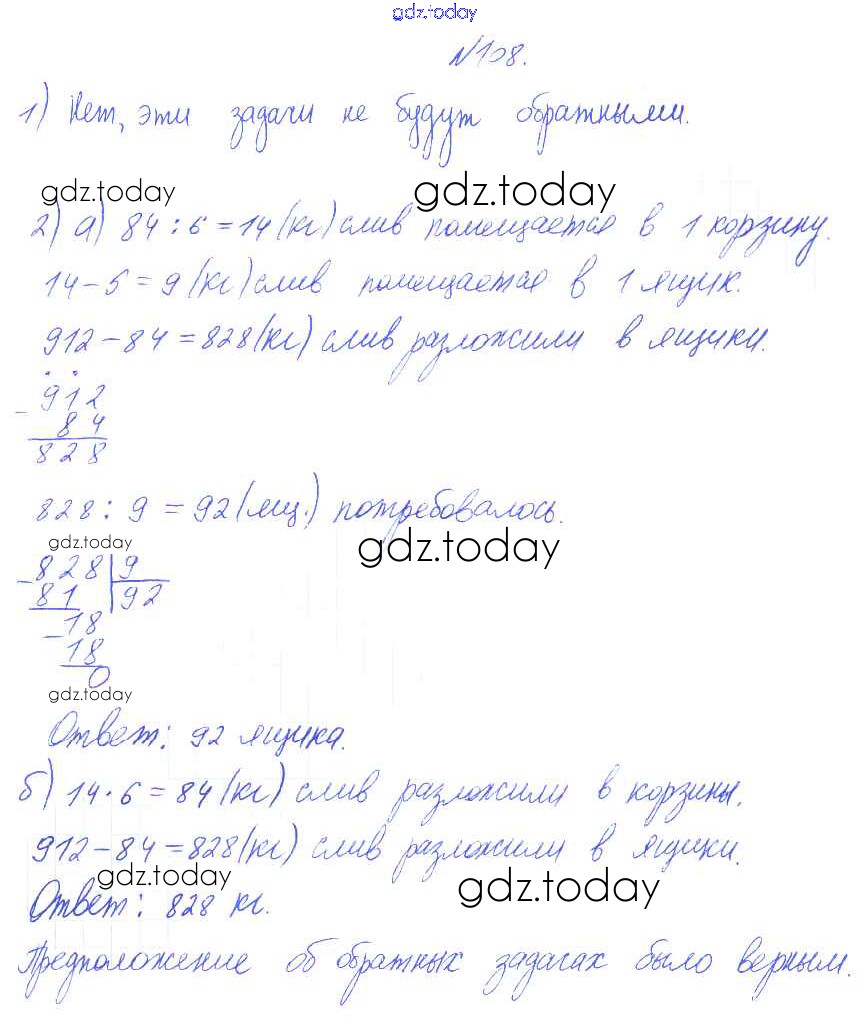 gdz.today
№108.
1) Нет, эти задачи не будут обратными.
gdz.today gdz.today
2) а) 84 : 6 = 14 (кг) слив помещается в 1 корзину.
14 - 5 = 9 (кг) слив помещается в 1 ящик.
912 - 84 = 828 (кг) слив разложили в ящики.
- 912
84
828
828 : 9 = 92 (ящ.) потребовалось.
gdz.today gdz.today
- 828 | 9
81 | 92
- 18
18
0
gdz.today
Ответ: 92 ящика.
б) 14 · 6 = 84 (кг) слив разложили в корзины.
912 - 84 = 828 (кг) слив разложили в ящики.
gdz.today gdz.today
Ответ: 828 кг.
Предположение об обратных задачах было верным.